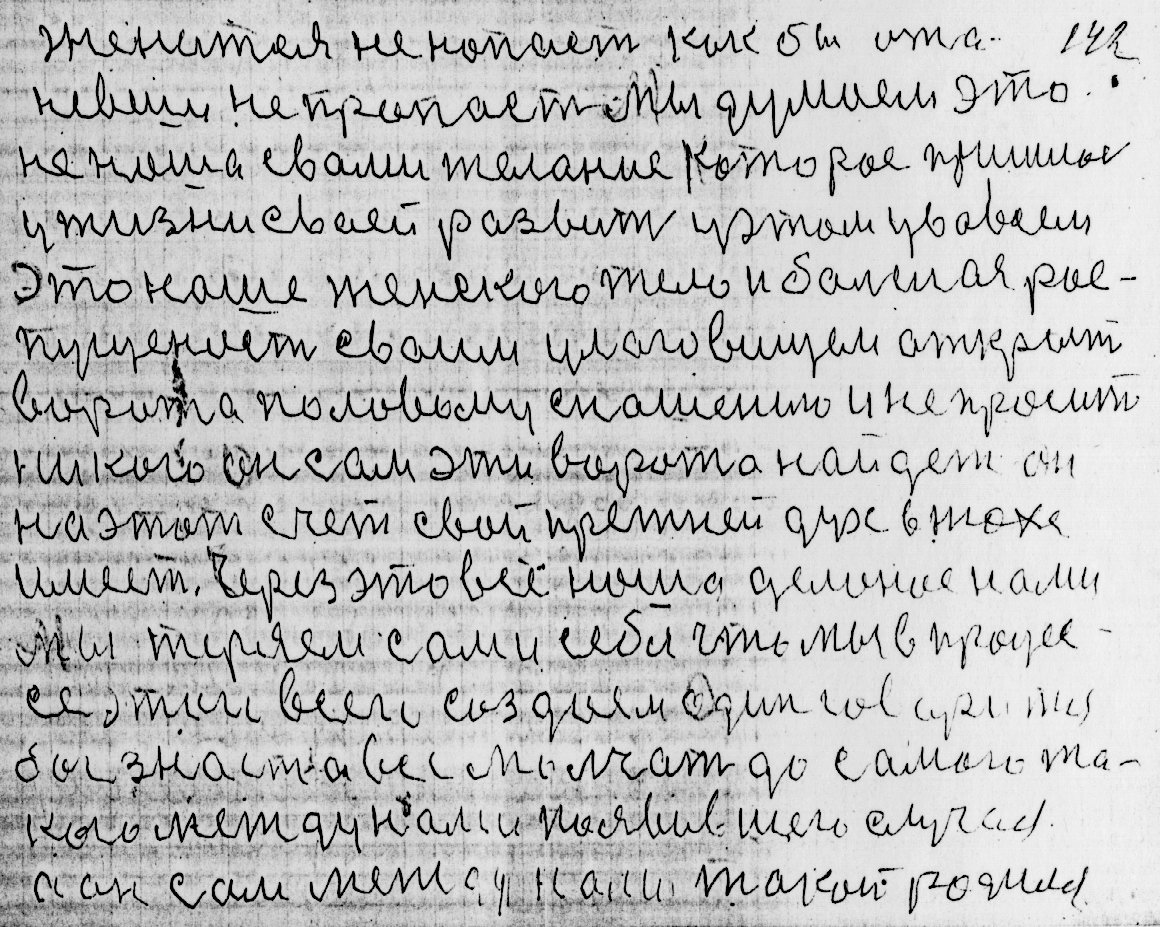 женится не попает как бы ита- 142
невеш не пропаст. Мы думаем это.
не наша свами желание которое пришлос
у жизни сваей развит и этом убаваем
Это наше женского тело и балшая рос-
пущеност сваим улаговищем аткрыт
ворота половому снашению и непросит
никого он сам эти ворота найдет он
на этот счет свой прежней дух в
имеет. Через это всё наша деленое нами
Мы теряем сами себя что мы в проце-
се этки всего создаем один говорит
бог знаст а вес молчат до самого та-
кого между нами появившего случая.
а он сам между нами такой родился